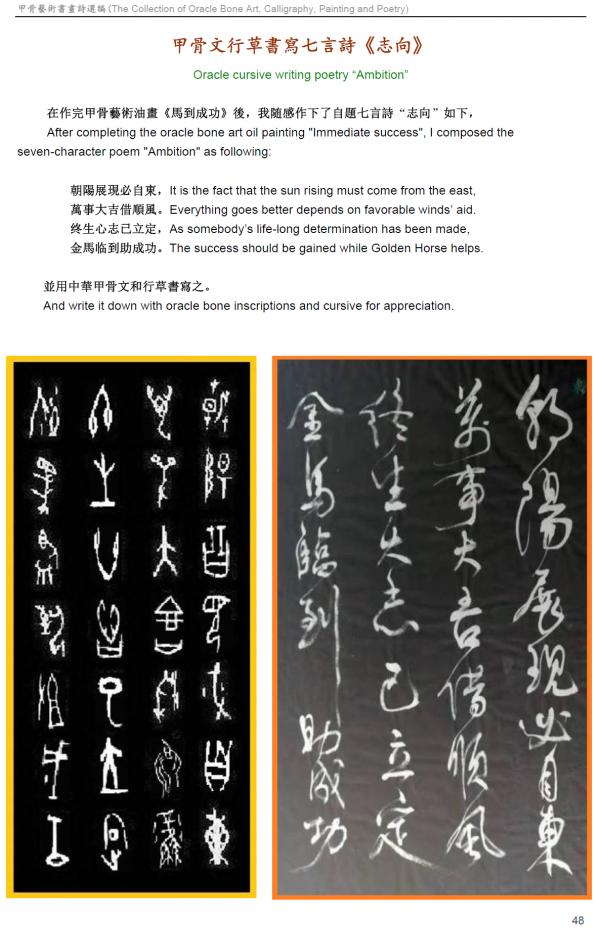 甲骨藝術書畫詩選編(The Collection of Oracle Bone Art, Calligraphy, Painting and Poetry)
甲骨文行草書寫七言詩《志向》
Oracle cursive writing poetry “Ambition”
在作完甲骨藝術油畫《馬到成功》後，我隨感作下了自題七言詩“志向”如下，
After completing the oracle bone art oil painting "Immediate success", I composed the
seven-character poem "Ambition" as following:
朝陽展現必自東，It is the fact that the sun rising must come from the east,
萬事大吉借順風。Everything goes better depends on favorable winds’ aid.
终生心志已立定，As somebody’s life-long determination has been made,
金馬临到助成功。The success should be gained while Golden Horse helps.
並用中華甲骨文和行草書寫之。
And write it down with oracle bone inscriptions and cursive for appreciation.
朝陽展現必自東
萬事大吉借順風
终生大志已立定
金馬臨到助成功
48